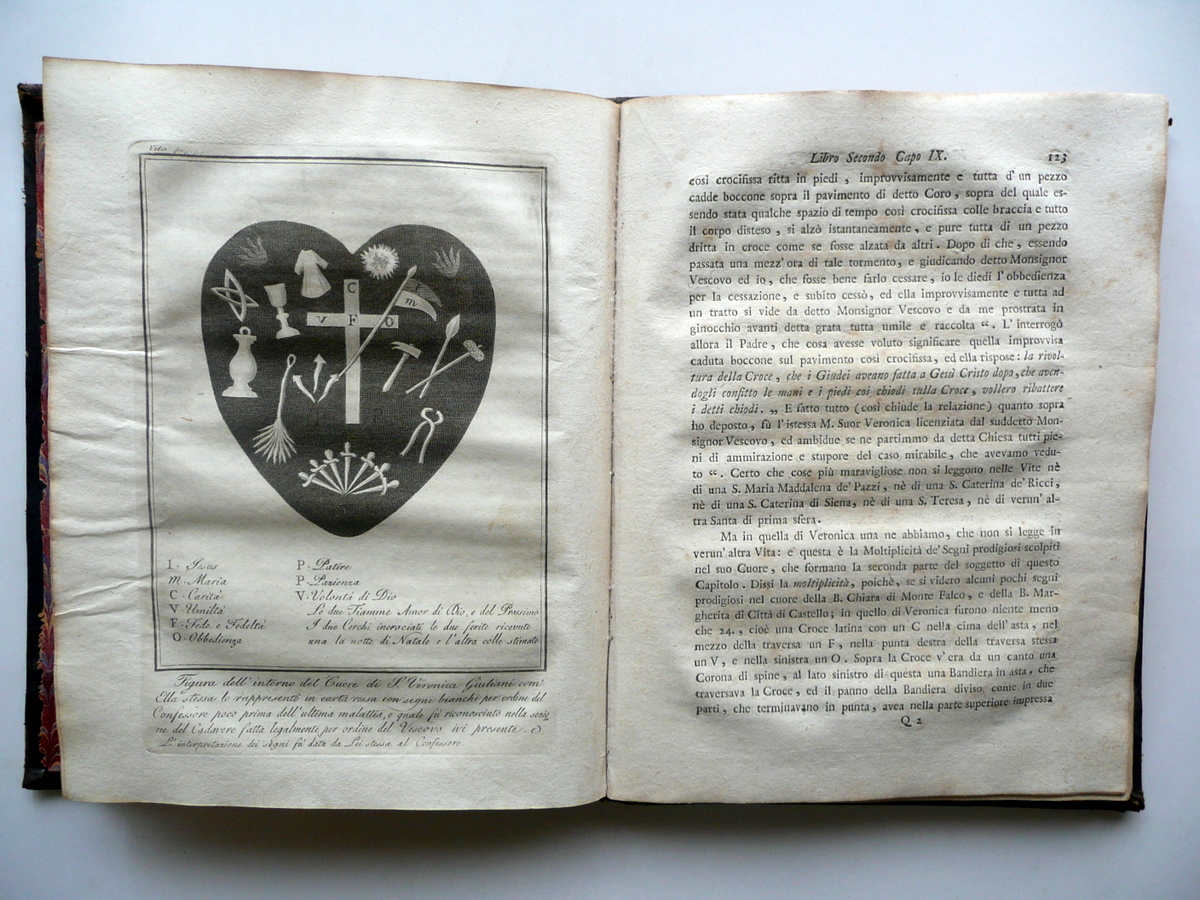 Vita
C
V F O
I
m
P P
I · Jesus
m · Maria
C · Carità
V · Umiltà
F · Fede e Fedeltà
O · Obbedienza
P · Patire
P · Pazienza
V · Volontà di Dio
Le due Fiamme Amor di Dio, e del Prossimo
I due Cerchi incrociati le due ferite ricevute
una la notte di Natale e l'altra colle stimate
Figura dell'interno del Cuore di S. Veronica Giuliani com'
Ella stessa lo rappresentò in carta rossa con segni bianchi per ordine del
Confessore poco prima dell'ultima malattia, e quale fu riconosciuto nella sezio
ne del Cadavere fatta legalmente per ordine del Vescovo ivi presente.
L'interpretazione dei segni fu data da Lei stessa al Confessore.
Libro Secondo Capo IX. 123
così crocifissa ritta in piedi, improvvisamente e tutta d'un pezzo
cadde boccone sopra il pavimento di detto Coro, sopra del quale es-
sendo stata qualche spazio di tempo così crocifissa colle braccia e tutto
il corpo disteso, si alzò istantaneamente, e pure tutta di un pezzo
dritta in croce come se fosse alzata da altri. Dopo di che, essendo
passata una mezz'ora di tale tormento, e giudicando detto Monsignor
Vescovo ed io, che fosse bene farlo cessare, io le diedi l'obbedienza
per la cessazione, e subito cessò, ed ella improvvisamente e tutta ad
un tratto si vide da detto Monsignor Vescovo e da me prostrata in
ginocchio avanti detta grata tutta umile e raccolta “. L'interrogò
allora il Padre, che cosa avesse voluto significare quella improvvisa
caduta boccone sul pavimento così crocifissa, ed ella rispose: la rivol-
tura della Croce, che i Giudei aveano fatta a Gesù Cristo dopo, che aven-
dogli confitto le mani e i piedi coi chiodi sulla Croce, vollero ribattere
i detti chiodi. „ E fatto tutto (così chiude la relazione) quanto sopra
ho deposto, fù l'istessa M. Suor Veronica licenziata dal suddetto Mon-
signor Vescovo, ed ambidue se ne partimmo da detta Chiesa tutti pie-
ni di ammirazione e stupore del caso mirabile, che avevamo vedu-
to “. Certo che cose più maravigliose non si leggono nelle Vite nè
di una S. Maria Maddalena de' Pazzi, nè di una S. Caterina de' Ricci,
nè di una S. Caterina di Siena, nè di una S. Teresa, nè di verun' al-
tra Santa di prima sfera.
Ma in quella di Veronica una ne abbiamo, che non si legge in
verun' altra Vita: e questa è la Moltiplicità de' Segni prodigiosi scolpiti
nel suo Cuore, che formano la seconda parte del soggetto di questo
Capitolo. Dissi la moltiplicità, poichè, se si videro alcuni pochi segni
prodigiosi nel cuore della B. Chiara di Monte Falco, e della B. Mar-
gherita di Città di Castello; in quello di Veronica furono niente meno
che 24., cioè una Croce latina con un C nella cima dell'asta, nel
mezzo della traversa un F, nella punta destra della traversa stessa
un V, e nella sinistra un O. Sopra la Croce v'era da un canto una
Corona di spine, al lato sinistro di questa una Bandiera in asta, che
traversava la Croce, ed il panno della Bandiera diviso, come in due
parti, che terminavano in punta, avea nella parte superiore impressa
Q 2